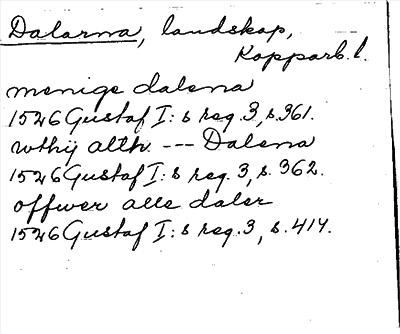 Dalarna, landskap,
Kopparb. l.
menige dalena
1526 Gustaf I:s reg. 3, s. 361.
wthij alth. --- Dalena
1526 Gustaf I:s reg. 3, s. 362.
offwer alle daler
1526 Gustaf I:s reg. 3, s. 414.